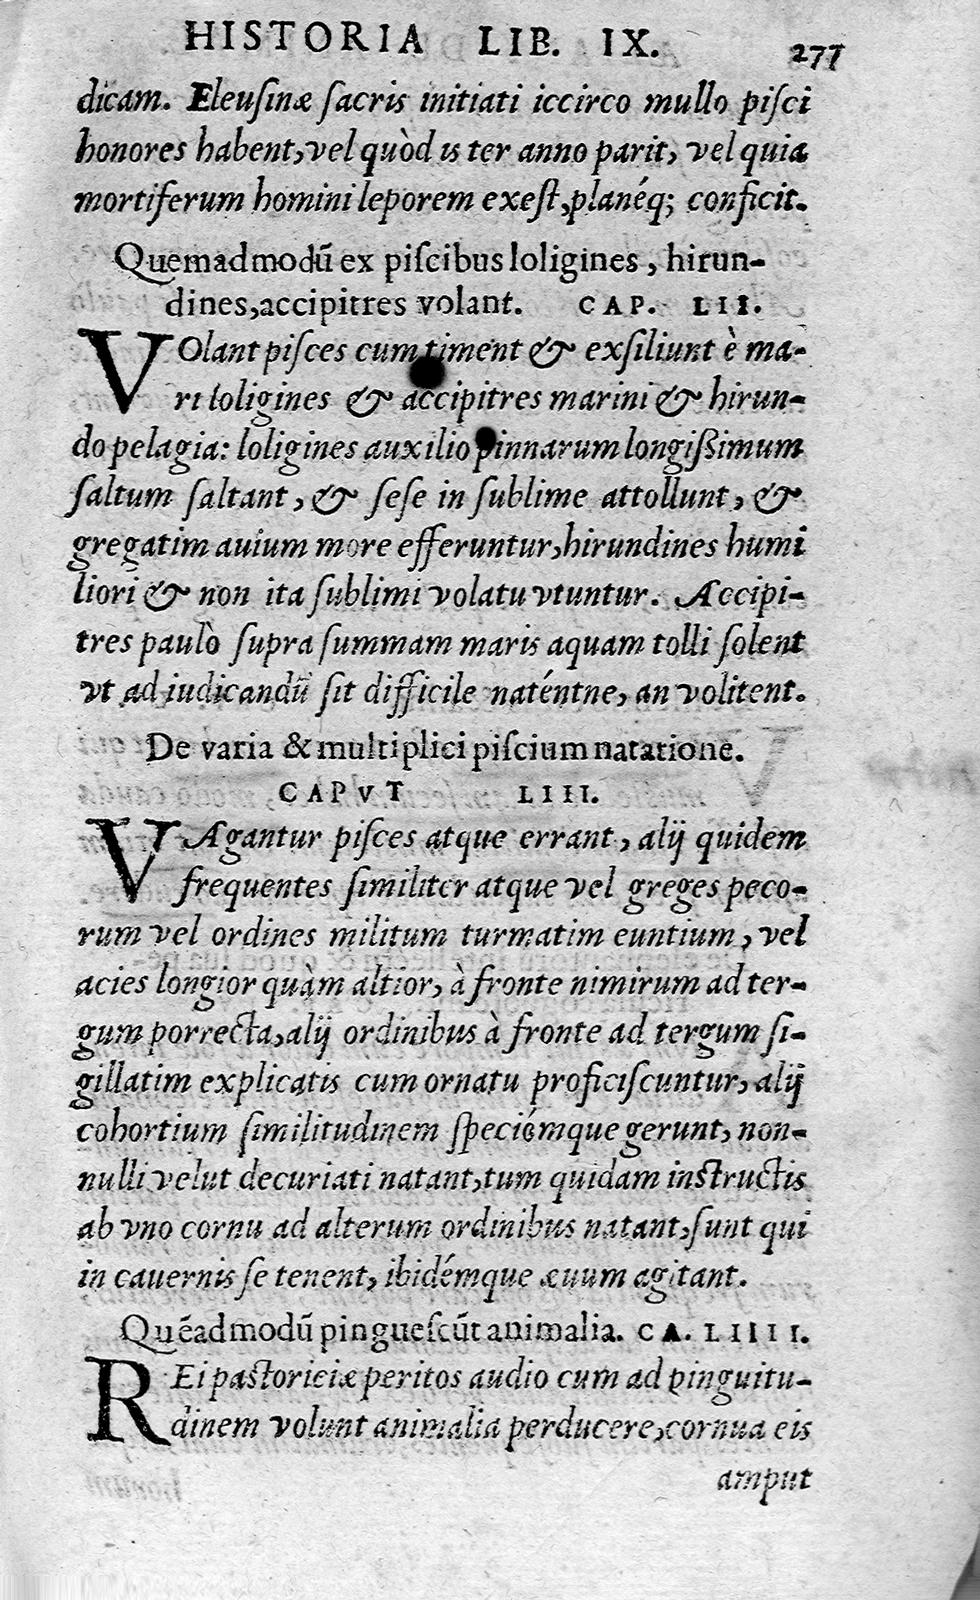 HISTORIA LIB. IX. 277
dicam. Eleusinæ sacris initiati iccirco mullo pisci
honores habent, vel quòd is ter anno parit, vel quia
mortiferum homini leporem exest, planéq; conficit.
Quemadmodū ex piscibus loligines, hirun-
dines, accipitres volant. CAP. LII.
VOlant pisces cum timent & exsiliunt è ma-
ri loligines & accipitres marini & hirun-
do pelagia: loligines auxilio pinnarum longißimum
saltum saltant, & sese in sublime attollunt, &
gregatim auium more efferuntur, hirundines humi
liori & non ita sublimi volatu vtuntur. Accipi-
tres paulò supra summam maris aquam tolli solent
vt ad iudicandū sit difficile naténtne, an volitent.
De varia & multiplici piscium natatione.
CAPVT LIII.
VAgantur pisces atque errant, alij quidem
frequentes similiter atque vel greges peco-
rum vel ordines militum turmatim euntium, vel
acies longior quàm altior, à fronte nimirum ad ter-
gum porrecta, alij ordinibus à fronte ad tergum si-
gillatim explicatis cum ornatu proficiscuntur, alij
cohortium similitudinem speciémque gerunt, non-
nulli velut decuriati natant, tum quidam instructis
ab vno cornu ad alterum ordinibus natant, sunt qui
in cauernis se tenent, ibidémque æuum agitant.
Quēadmodū pinguescūt animalia. CA. LIIII.
REi pastoriciæ peritos audio cum ad pinguitu-
dinem volunt animalia perducere, cornua eis
amput